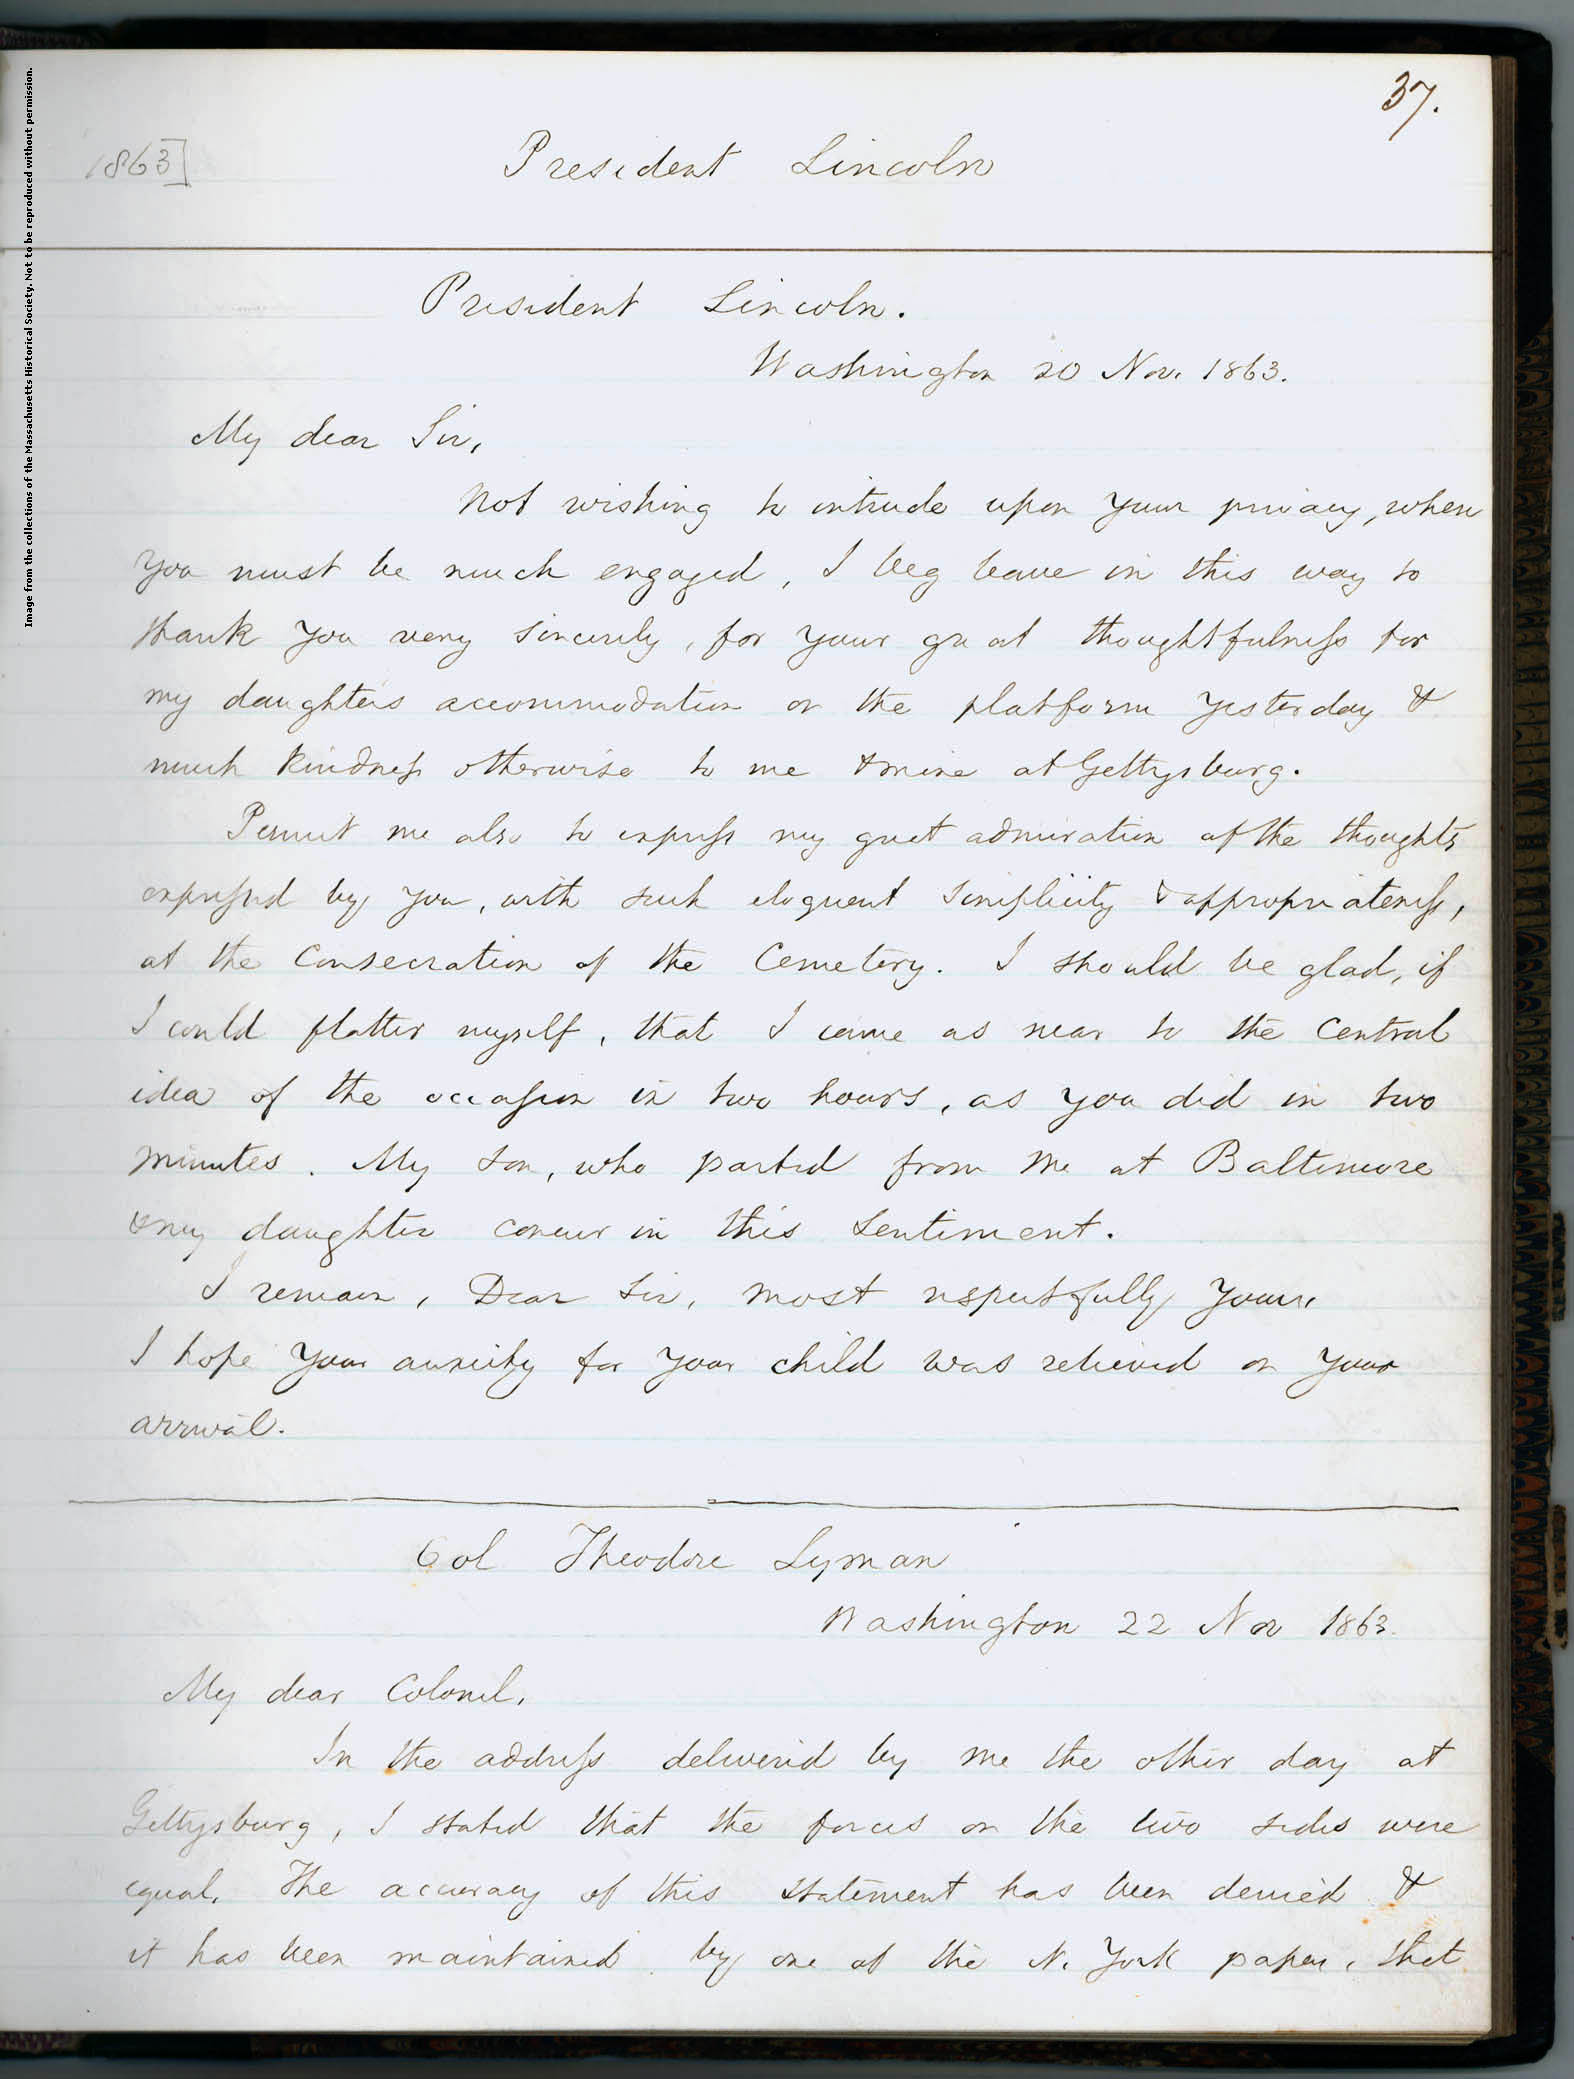 37.
1863]
President Lincoln
President Lincoln.
Washington 20 Nov. 1863.
My dear Sir,
Not wishing to intrude upon your privacy, when
you must be much engaged, I beg leave in this way to
thank you very sincerely, for your great thoughtfulness for
my daughter's accommodation on the platform yesterday &
much kindness otherwise to me & mine at Gettysburg.
Permit me also to express my great admiration of the thoughts
expressed by you, with such eloquent simplicity & appropriateness,
at the Consecration of the Cemetery. I should be glad, if
I could flatter myself, that I came as near to the central
idea of the occasion in two hours, as you did in two
minutes. My son, who parted from me at Baltimore
& my daughter concur in this sentiment.
I remain, Dear Sir, most respectfully Yours,
I hope your anxiety for your child was relieved on your
arrival.
Col Theodore Lyman
Washington 22 Nov 1863.
My dear Colonel,
In the address delivered by me the other day at
Gettysburg, I stated that the forces on the two sides were
equal. The accuracy of this statement has been denied &
it has been maintained by one of the N. York papers, that
Image from the collections of the Massachusetts Historical Society. Not to be reproduced without permission.